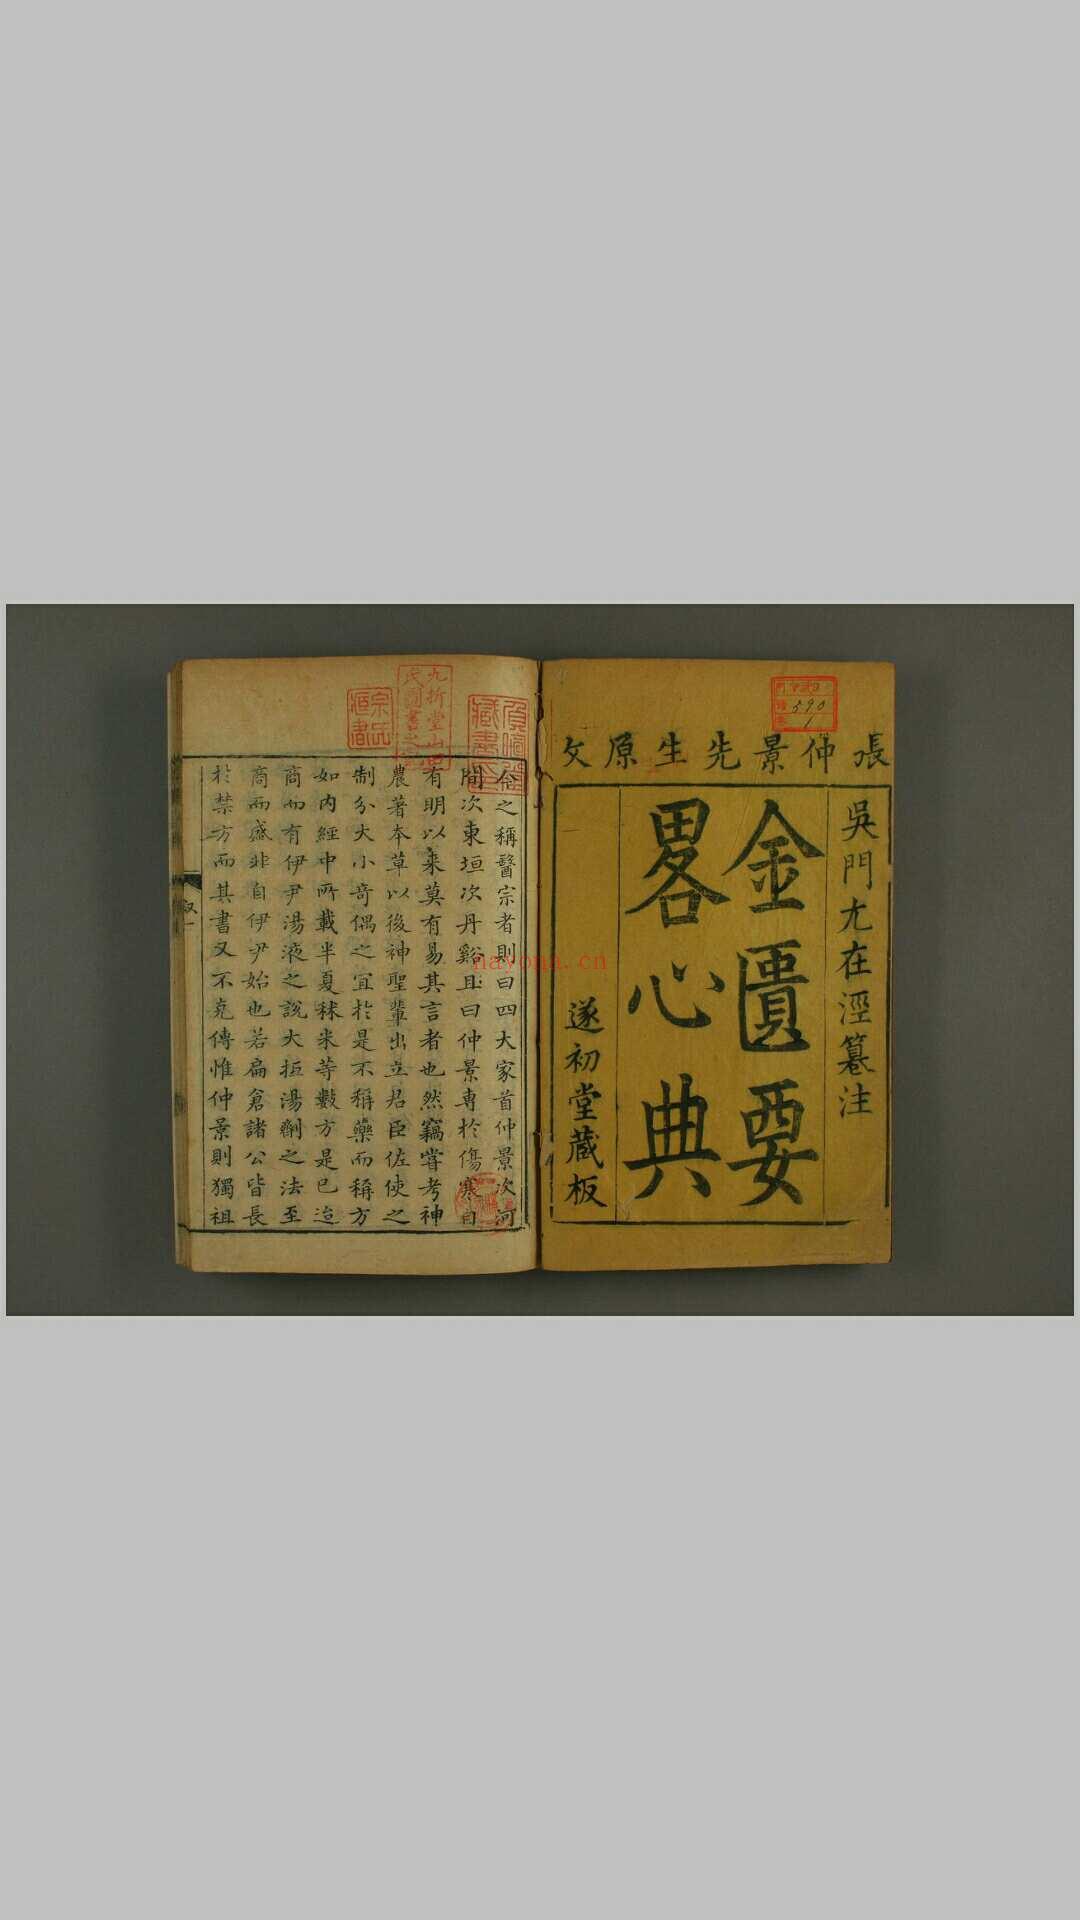 張仲景先生原文
吳門尤在涇纂注
金匱要
畧心典
遂初堂藏板
590
1
今之稱醫宗者則曰四大家首仲景次河
間次東垣次丹谿且曰仲景專於傷寒自
有明以来莫有易其言者也然竊嘗考神
農著本草以後神聖輩出立君臣佐使之
制分大小奇偶之宜於是不稱藥而稱方
如内經中所載半夏秫米等數方是已迨
商而有伊尹湯液之說大抵湯劑之法至
商而盛非自伊尹始也若扁倉諸公皆長
於禁方而其書又不克傳惟仲景則獨祖
叙
一
九折堂山田
氏圖書之記
宗氏
藏書
藏書
nayona.cn